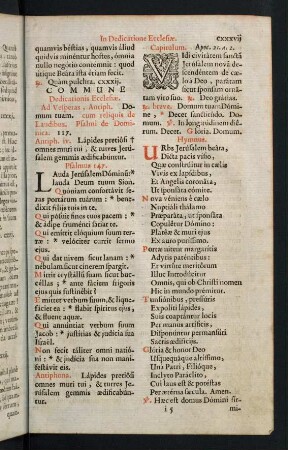 In Dedicatione Ecclesiæ.
cxxxvij
quamvis béstias, quamvis áliud
quidvis minéntur hostes, ómnia
nullo negotio contemnit: quod
utique Beáta ista étiam fecit.
℟. Quàm pulchra. cxxxij.
COMMUNE
Dedicationis Ecclesiæ.
Ad Vesperas, Antiph. Domum tuam. cum reliquis de
Laudibus. Psalmi de Dominica. 127.
Antiph. iv. Lápides pretiósi †
omnes muri tui, & turres Jerúsalem gemmis ædificabúntur.
Psalmus 147.
LAuda Jerúsalem Dóminũ: *
lauda Deum tuum Sion.
Quóniam confortávit seras portárum tuárum: * benedíxit fíliis tuis in te.
Qui pósuit fines tuos pacem: *
& ádipe fruménti sátiat te.
Qui emíttit elóquium suum terræ: * velóciter currit sermo
ejus.
Qui dat nivem sicut lanam: *
nébulam sicut cínerem spargit.
Mittit crystállũ suam sicut buccéllas: * ante fáciem frígoris
ejus quis sustinébit?
Emíttet verbum suum, & liquefáciet ea: * flabit spíritus ejus,
& fluent aquæ.
Qui annúntiat verbum suum
Jacob: * justítias & judícia sua
Israël.
Non fecit táliter omni natióni: * & judícia sua non manifestávit eis.
Antiphona. Lápides pretiósi
omnes muri tui, & turres Jerúsalem gemmis ædificabúntur.
Capitulum. Apoc. 21. a. 2.
VIdi civitátem sanctã
Jerúsalem novã descendéntem de cælo à Deo, parátam,
sicut sponsam ornátam viro suo. ℟. Deo grátias.
℟. breve. Domum tuam Dómine; * Decet sanctitúdo. Domum. ℣. In longitúdinem diérum. Decet. Glória. Domum.
Hymnus.
URbs Jerúsalem beáta,
Dicta pacis vísio,
Quæ constrúitur in cælis
Vivis ex lapídibus,
Et Angelis coronáta,
Ut sponsáta cómite.
Nova véniens è cælo
Nuptiáli thálamo
Præparáta, ut sponsáta
Copulétur Dómino:
Platéæ & muri ejus
Ex auro puríssimo.
Portæ nitent margarítis
Adytis paténtibus:
Et virtúte meritórum
Illuc introdúcitur
Omnis, qui ob Christi nomen
Hic in mundo prémitur.
Tunsiónibus, pressúris
Expolíti lápides,
Suis coaptántur locis
Per manum artíficis,
Disponúntur permansúri
Sacris ædifíciis.
Glória & honor Deo
Usquequáque altíssimo,
Unà Patri, Filióque,
Inclyto Paráclito,
Cui laus est & potéstas
Per ætérna sæcula. Amen.
℣. Hæc est domus Dómini fir-
i 5
mi-